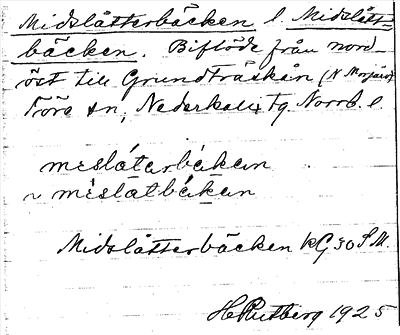 Midslåtterbäcken l. Midslått-
bäcken. Biflöde från nord-
öst till Grundträskån (N Morjärv)
Töre sn, Nederkalix tg. Norrb. l.
meslåtarbäkan
~ meslåtbäkan
Midslåtterbäcken kG 30 S.M.
H Rutberg 1925